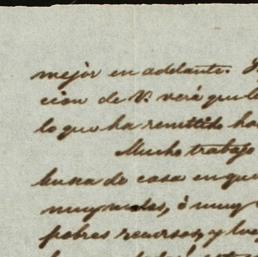 mejor en adelante.
cion de V. verá que l
lo que ha remitido ha
Mucho trabajo
busca de casa en que
muy malas, ó muy
pobres recursos, y lue